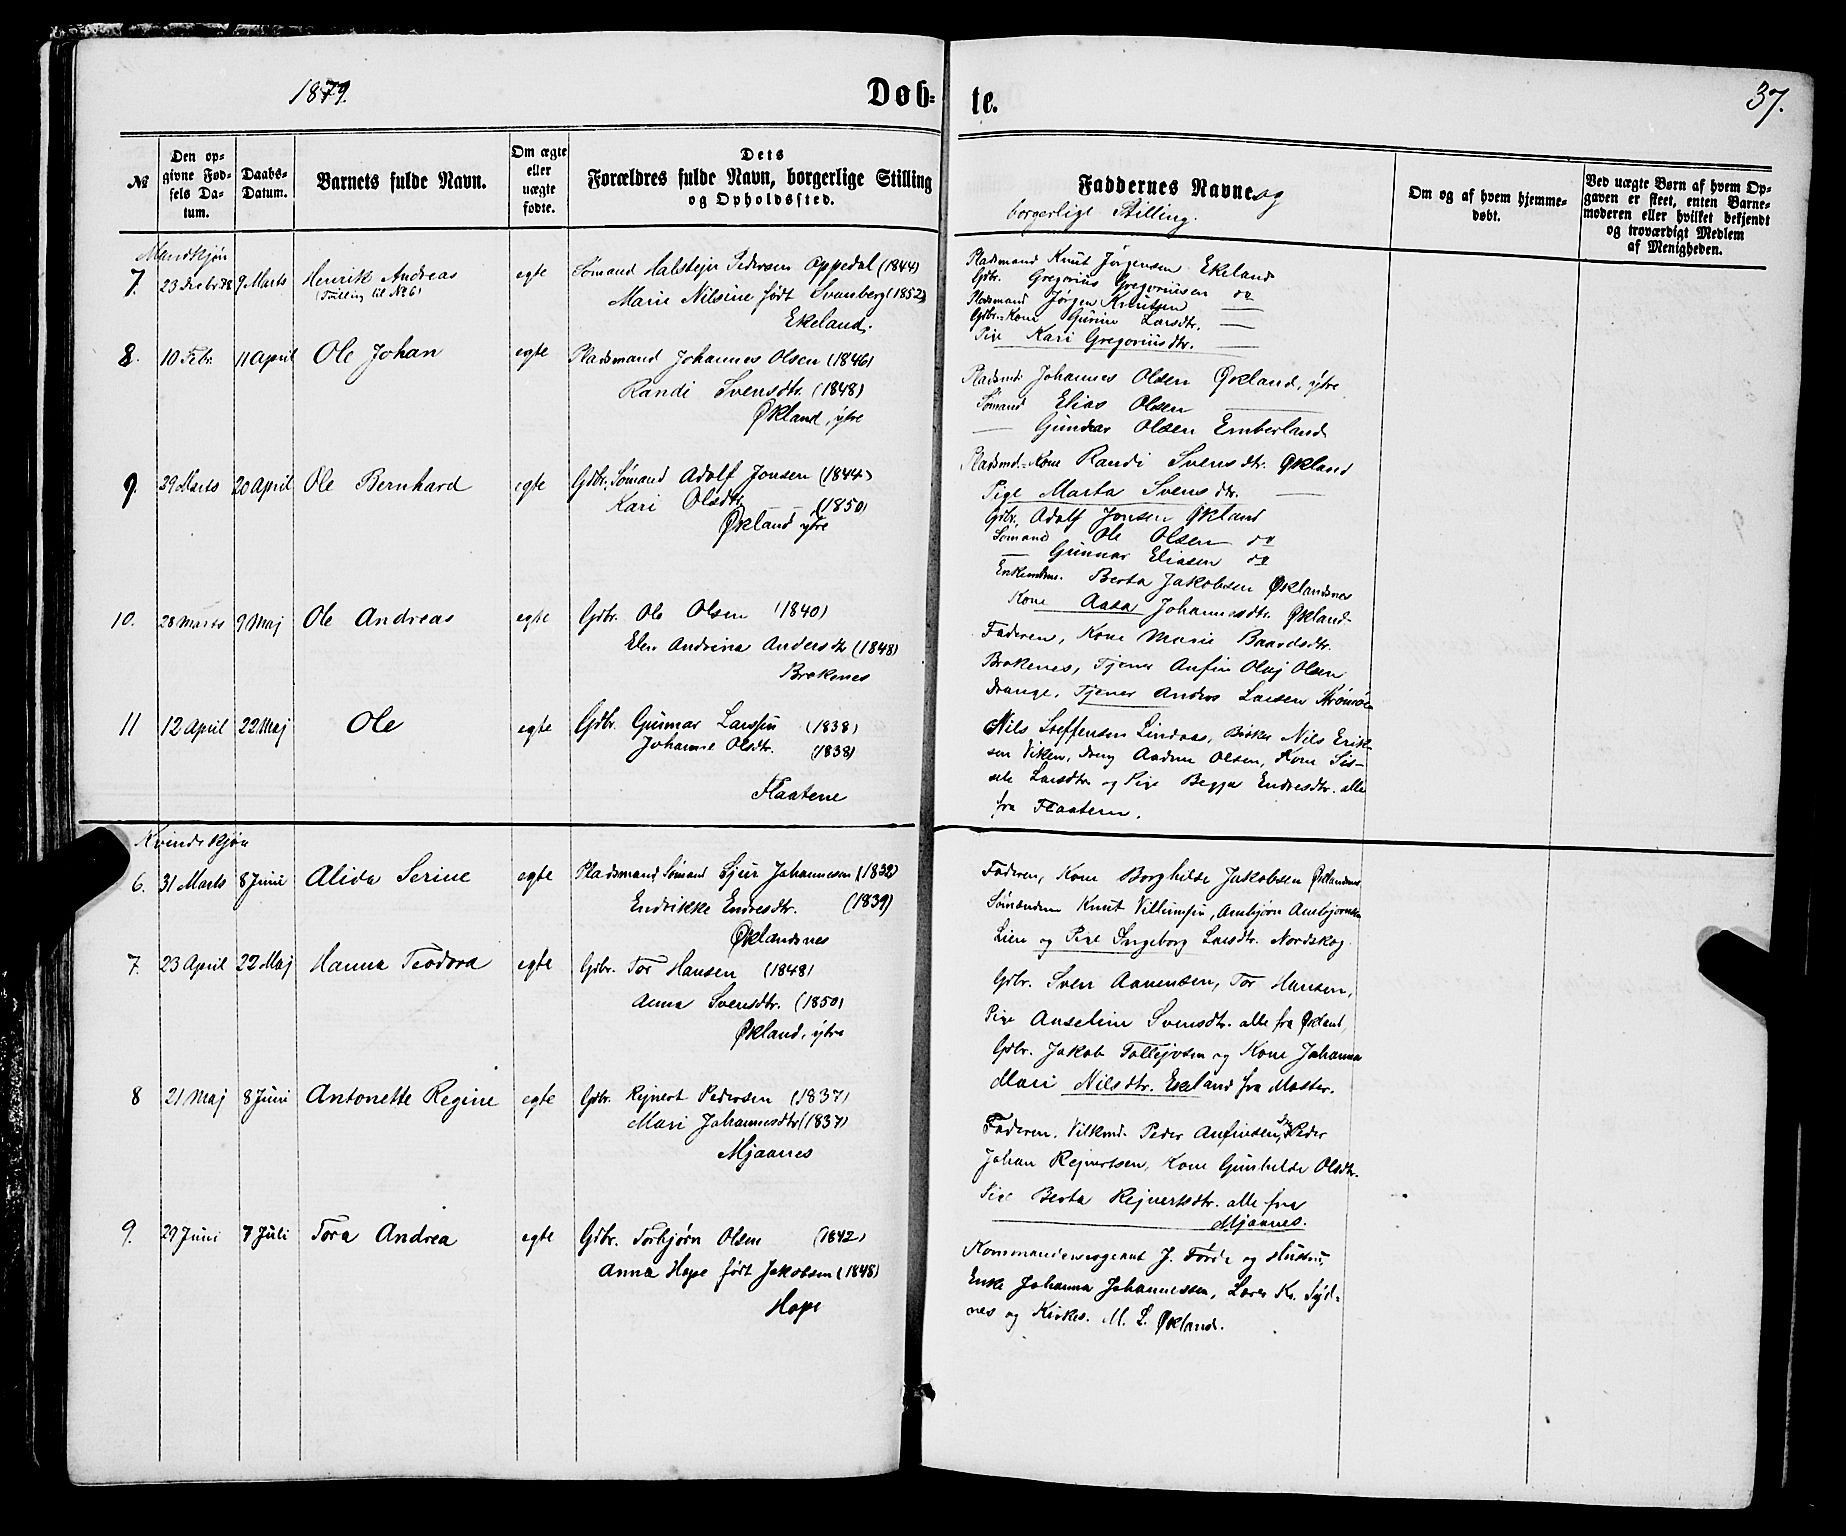 1879.
Døb-
te.
37.
№
Den op-
givne Fød-
sels Da-
tum.
Daabs-
Datum.
Barnets fulde Navn.
Om ægte
eller
uægte
fødte.
Dets
Forældres fulde Navn, borgerlige Stilling
og Opholdssted.
Faddernes Navne og
borgerlige Stilling.
Om og af hvem hjemme-
døbt.
Ved uægte Børn af hvem Op-
gaven er skeet, enten Barne-
moderen eller hvilket bekjendt
og troværdigt Medlem
af Menigheden.
Mandkjøn
7. 23 Decbr. 78 9 Marts Henrik Andreas egte Sømand Halstejn Pedersen Oppedal (1844)
(Tvilling til № 6)
Marie Nilsine født Svanberg (1852)
Ekeland.
Pladsmand Knut Jørgensen Ekeland
Gdbr. Gregorius Gregoriusen do
Pladsmand Jørgen Knutsen —
Gdbr.-Kone Gurine Larsdtr. —
Pige Kari Gregoriusdtr. —
8. 10 Febr. 11 April Ole Johan egte Pladsmand Johannes Olsen (1846)
Randi Svensdtr. (1848)
Økland, ytre
Pladsmd. Johannes Olsen Økland, ytre
Sømand Elias Olsen —
— Gunnar Olsen Emberland
Pladsmd.-Kone Randi Svensdtr. Økland
Pige Marta Svensdtr. —
9. 29 Marts 20 April Ole Bernhard egte Gdbr. Sømand Adolf Jonsen (1844)
Kari Olsdtr. (1850)
Økland ytre
Gdbr. Adolf Jonsen Økland
Sømand Ole Olsen do
— Gunnar Eliasen do
Enkemdm. Berta Jakobsen Øklandsnes
Kone Aasa Johannesdtr. Økland
10. 28 Marts 9 Maj Ole Andreas egte Gdbr. Ole Olsen (1840)
Elen Andrina Andersdtr (1848)
Brekenes
Faderen, Kone Marie Baardsdtr.
Brekenes, Tjener Anfin Olaj Olsen
Drange, Tjener Anders Larsen Strømøe
11 12 April 22 Maj Ole egte Gdbr. Gunnar Larssen (1838)
Johanne Olsdtr. (1838)
Flaatene
Nils Steffensen Lindaas, Nils Erik-
sen Viken, Dreng Aadne Olsen, Kone Sis-
sele Larsdtr og Pige Begga Endresdtr. alle
fra Flaatene.
Kvindekjøn
6. 31 Marts 8 Juni Alida Serine egte Pladsmand Sømand Sjur Johannesen (1832)
Endrikke Endresdtr. (1839)
Øklandsnes
Faderen, Kone Borghilde Jakobsen Øklandsnes
Sømændene Knut Villumsen, Ambjørn Ambjørnsen
Liere og Pige Ingeborg Larsdtr. Nordskog
7. 23 April 22 Maj Hanna Teodora egte Gdbr. Tor Hansen (1848)
Anna Svensdtr. (1850)
Økland, ytre
Gdbr. Sven Aamensen, Tor Hansen,
Pige Anseline Svensdtr. alle fra Økland,
Gdbr. Jakob Tollejvsen og Kone Johanna
Mari Nilsdtr. Ekeland fra Moster.
8 21 Maj 8 Juni Antonette Regine egte Gdbr. Rejnert Pedersen (1837)
Mari Johannesdtr (1837)
Mjaanes
Faderen, Vilkmd. Peder Anfinsen, Dg. Peder
Johan Rejnertsen, Kone Gunhilde Olsdtr.
Pige Berta Rejnertsdtr. alle fra
Mjaanes.
9. 29 Juni 7 Juli Tora Andrea egte Gdbr. Torbjørn Olsen (1842)
Anna Hope født Jakobsen (1848)
Hope
Kommandersergeant J. Førde og Hustru,
Enke Johanna Johannessen, Lærer Kr. Syd-
nes og Kirkes. M. L. Økland.